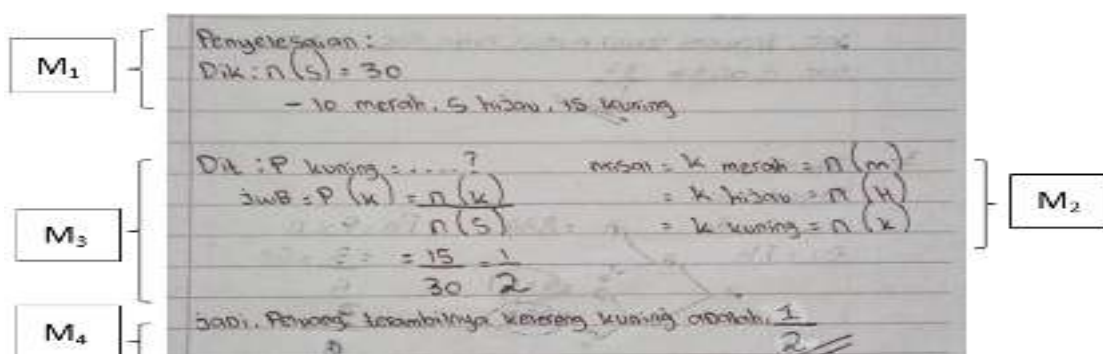 M₁
Penyelesaian :
Dik : n(S) = 30
- 10 merah, 5 hijau, 15 kuning
M₃
Dit : P kuning = ....?
jwB = P(k) = n(k)/n(S)
= 15/30 = 1/2
misal = k merah = n(m)
= k hijau = n(H)
= k kuning = n(k)
M₂
M₄
Jadi, Peluang terambilnya kelereng kuning adalah, 1/2